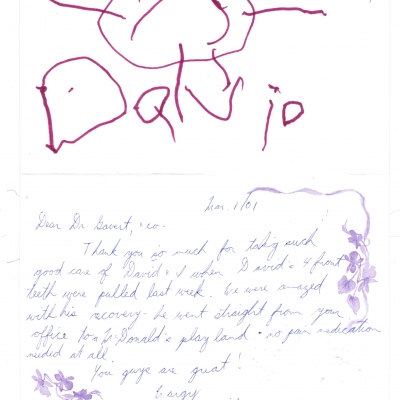 David
Mar. 1/01
Dear Dr. & co.
Thank you so much for taking such
good care of David & I when David's 4 front
teeth were pulled last week. We were amazed
with his recovery - he went straight from your
office to a McDonald's playland - no pain medication
needed at all.
You guys are great!